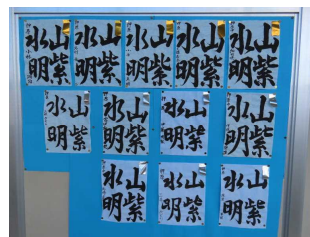 山紫
水明
山紫
水明
山紫
水明
山紫
水明
山紫
水明
山紫
水明
山紫
水明
山紫
水明
山紫
水明
山紫
水明
山紫
水明
山紫
水明